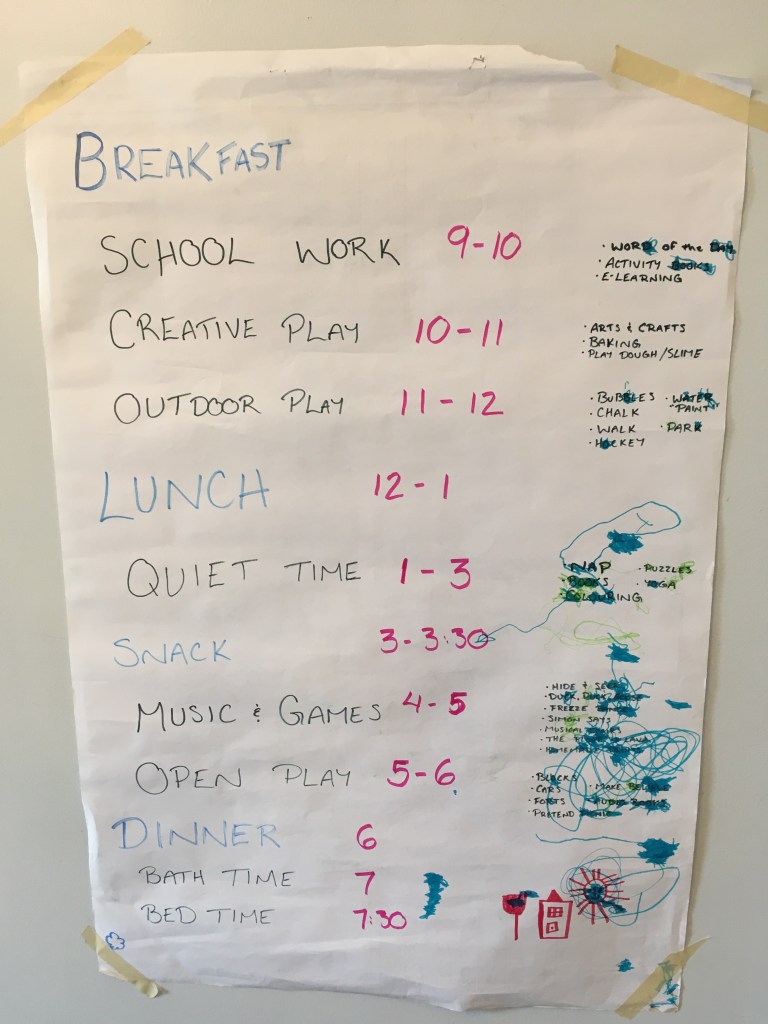 BREAKFAST
SCHOOL WORK 9-10
· WORD of the DAY
· ACTIVITY BOOKS
· E-LEARNING
CREATIVE PLAY 10-11
· ARTS & CRAFTS
· BAKING
· PLAY DOUGH/SLIME
OUTDOOR PLAY 11-12
· BUBBLES · WATER PAINT
· CHALK
· WALK · PARK
· HOCKEY
LUNCH 12-1
QUIET TIME 1-3
NAP · PUZZLES
BOOKS · YOGA
COLOURING
SNACK 3-3:30
MUSIC & GAMES 4-5
· HIDE & SEEK
· DUCK, DUCK,
· FREEZE
· SIMON SAYS
· MUSICAL
· THE LAVA
· HOMEMADE
OPEN PLAY 5-6
· BLOCKS
· CARS · MAKE
· FORTS · AUDIO BOOKS
· PRETEND PICNIC
DINNER 6
BATH TIME 7
BED TIME 7:30